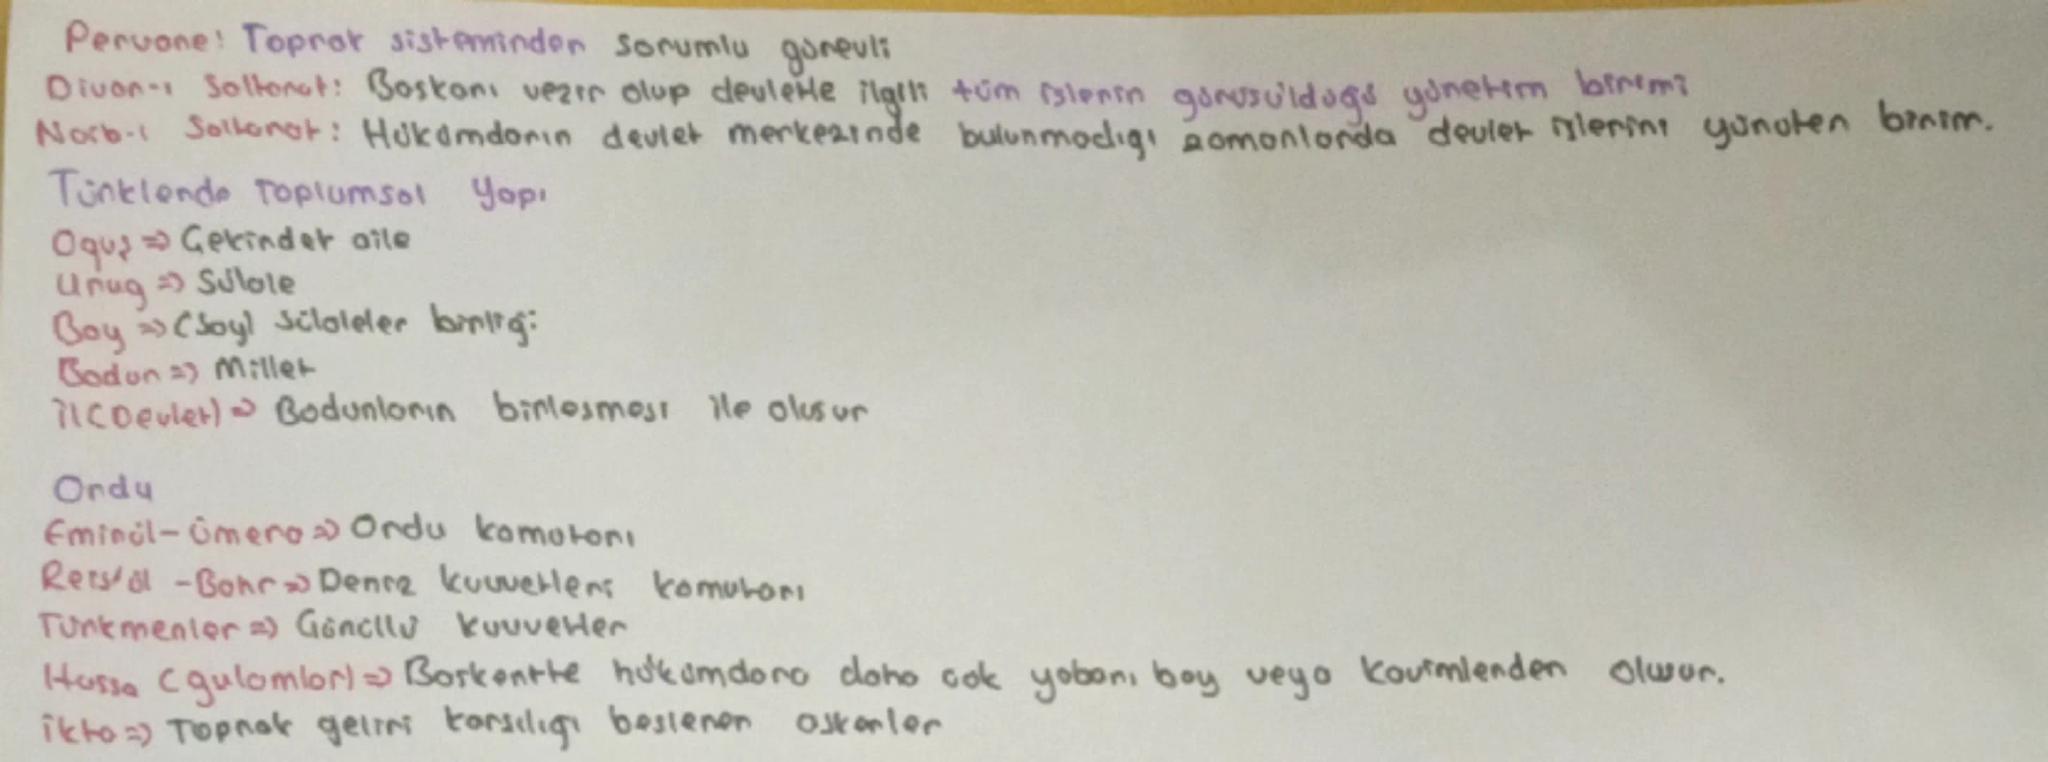 Pervane: Toprak sisteminden sorumlu görevli
Divan-ı Saltanat: Başkanı vezir olup devletle ilgili tüm işlerin görüşüldüğü yönetim birimi
Naib-i Saltanat: Hükümdarın devlet merkezinde bulunmadığı zamanlarda devlet işlerini yürüten birim.
Türklerde Toplumsal Yapı
Oguş => Çekirdek aile
Urug => Sülale
Boy => (Soy) sülaleler birliği
Bodun => Millet
İl (Devlet) => Bodunların birleşmesi ile oluşur
Ordu
Emirül-ümera => Ordu komutanı
Reis'ül -Bahr => Deniz kuvvetleri komutanı
Türkmenler => Gönüllü kuvvetler
Hassa (gulamlar) => Başkentte hükümdara daha çok yabancı boy veya kavimlerden oluşur.
İkta => Toprak geliri karşılığı beslenen askerler